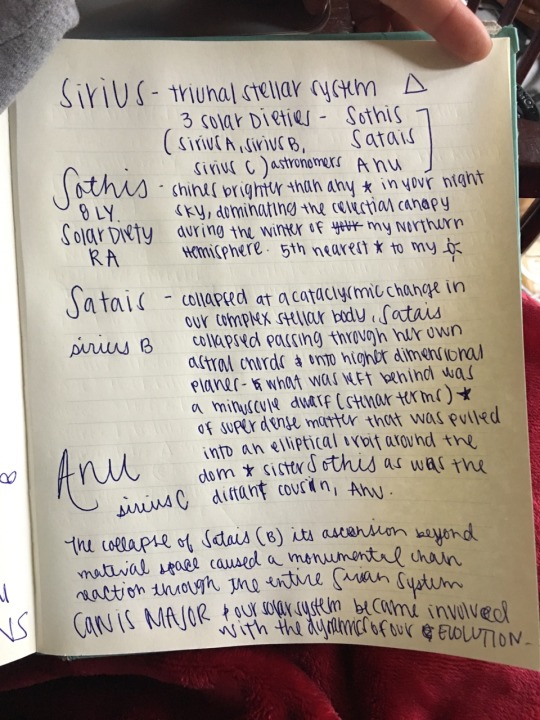 Sirius - triunal stellar system △
3 solar Dieties - Sothis
(sirius A, sirius B, Satais
sirius C) astronomers Anu
Sothis - shines brighter than any ★ in your night
8 LY. sky, dominating the celestial canopy
Solar Diety during the winter of my Northern
RA Hemisphere. 5th nearest ★ to my ☆
Satais - collapsed at a cataclysmic change in
our complex stellar body. Satais
sirius B collapsed passing through her own
astral chords & onto higher dimensional
planes - & what was left behind was
a minuscule dwarf (stellar terms) ★
of super dense matter that was pulled
into an elliptical orbit around the
Anu dom ★ sister Sothis as was the
sirius C distant cousin, Anu.
The collapse of Satais (B) its ascension beyond
material space caused a monumental chain
reaction through the entire Sirian System
CANIS MAJOR & our solar system became involved
with the dynamics of our EVOLUTION -